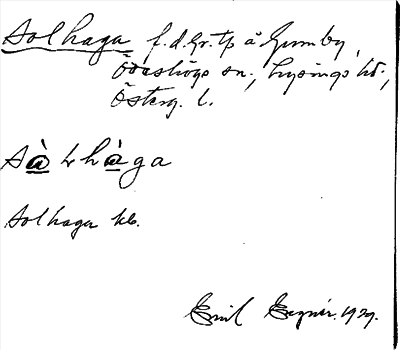 Solhaga f.d. Gr. tp å Gumby,
Ödeshögs sn., Lysings hd.,
Österg. l.
sàlhàga
Solhaga kb.
Emil 1929.